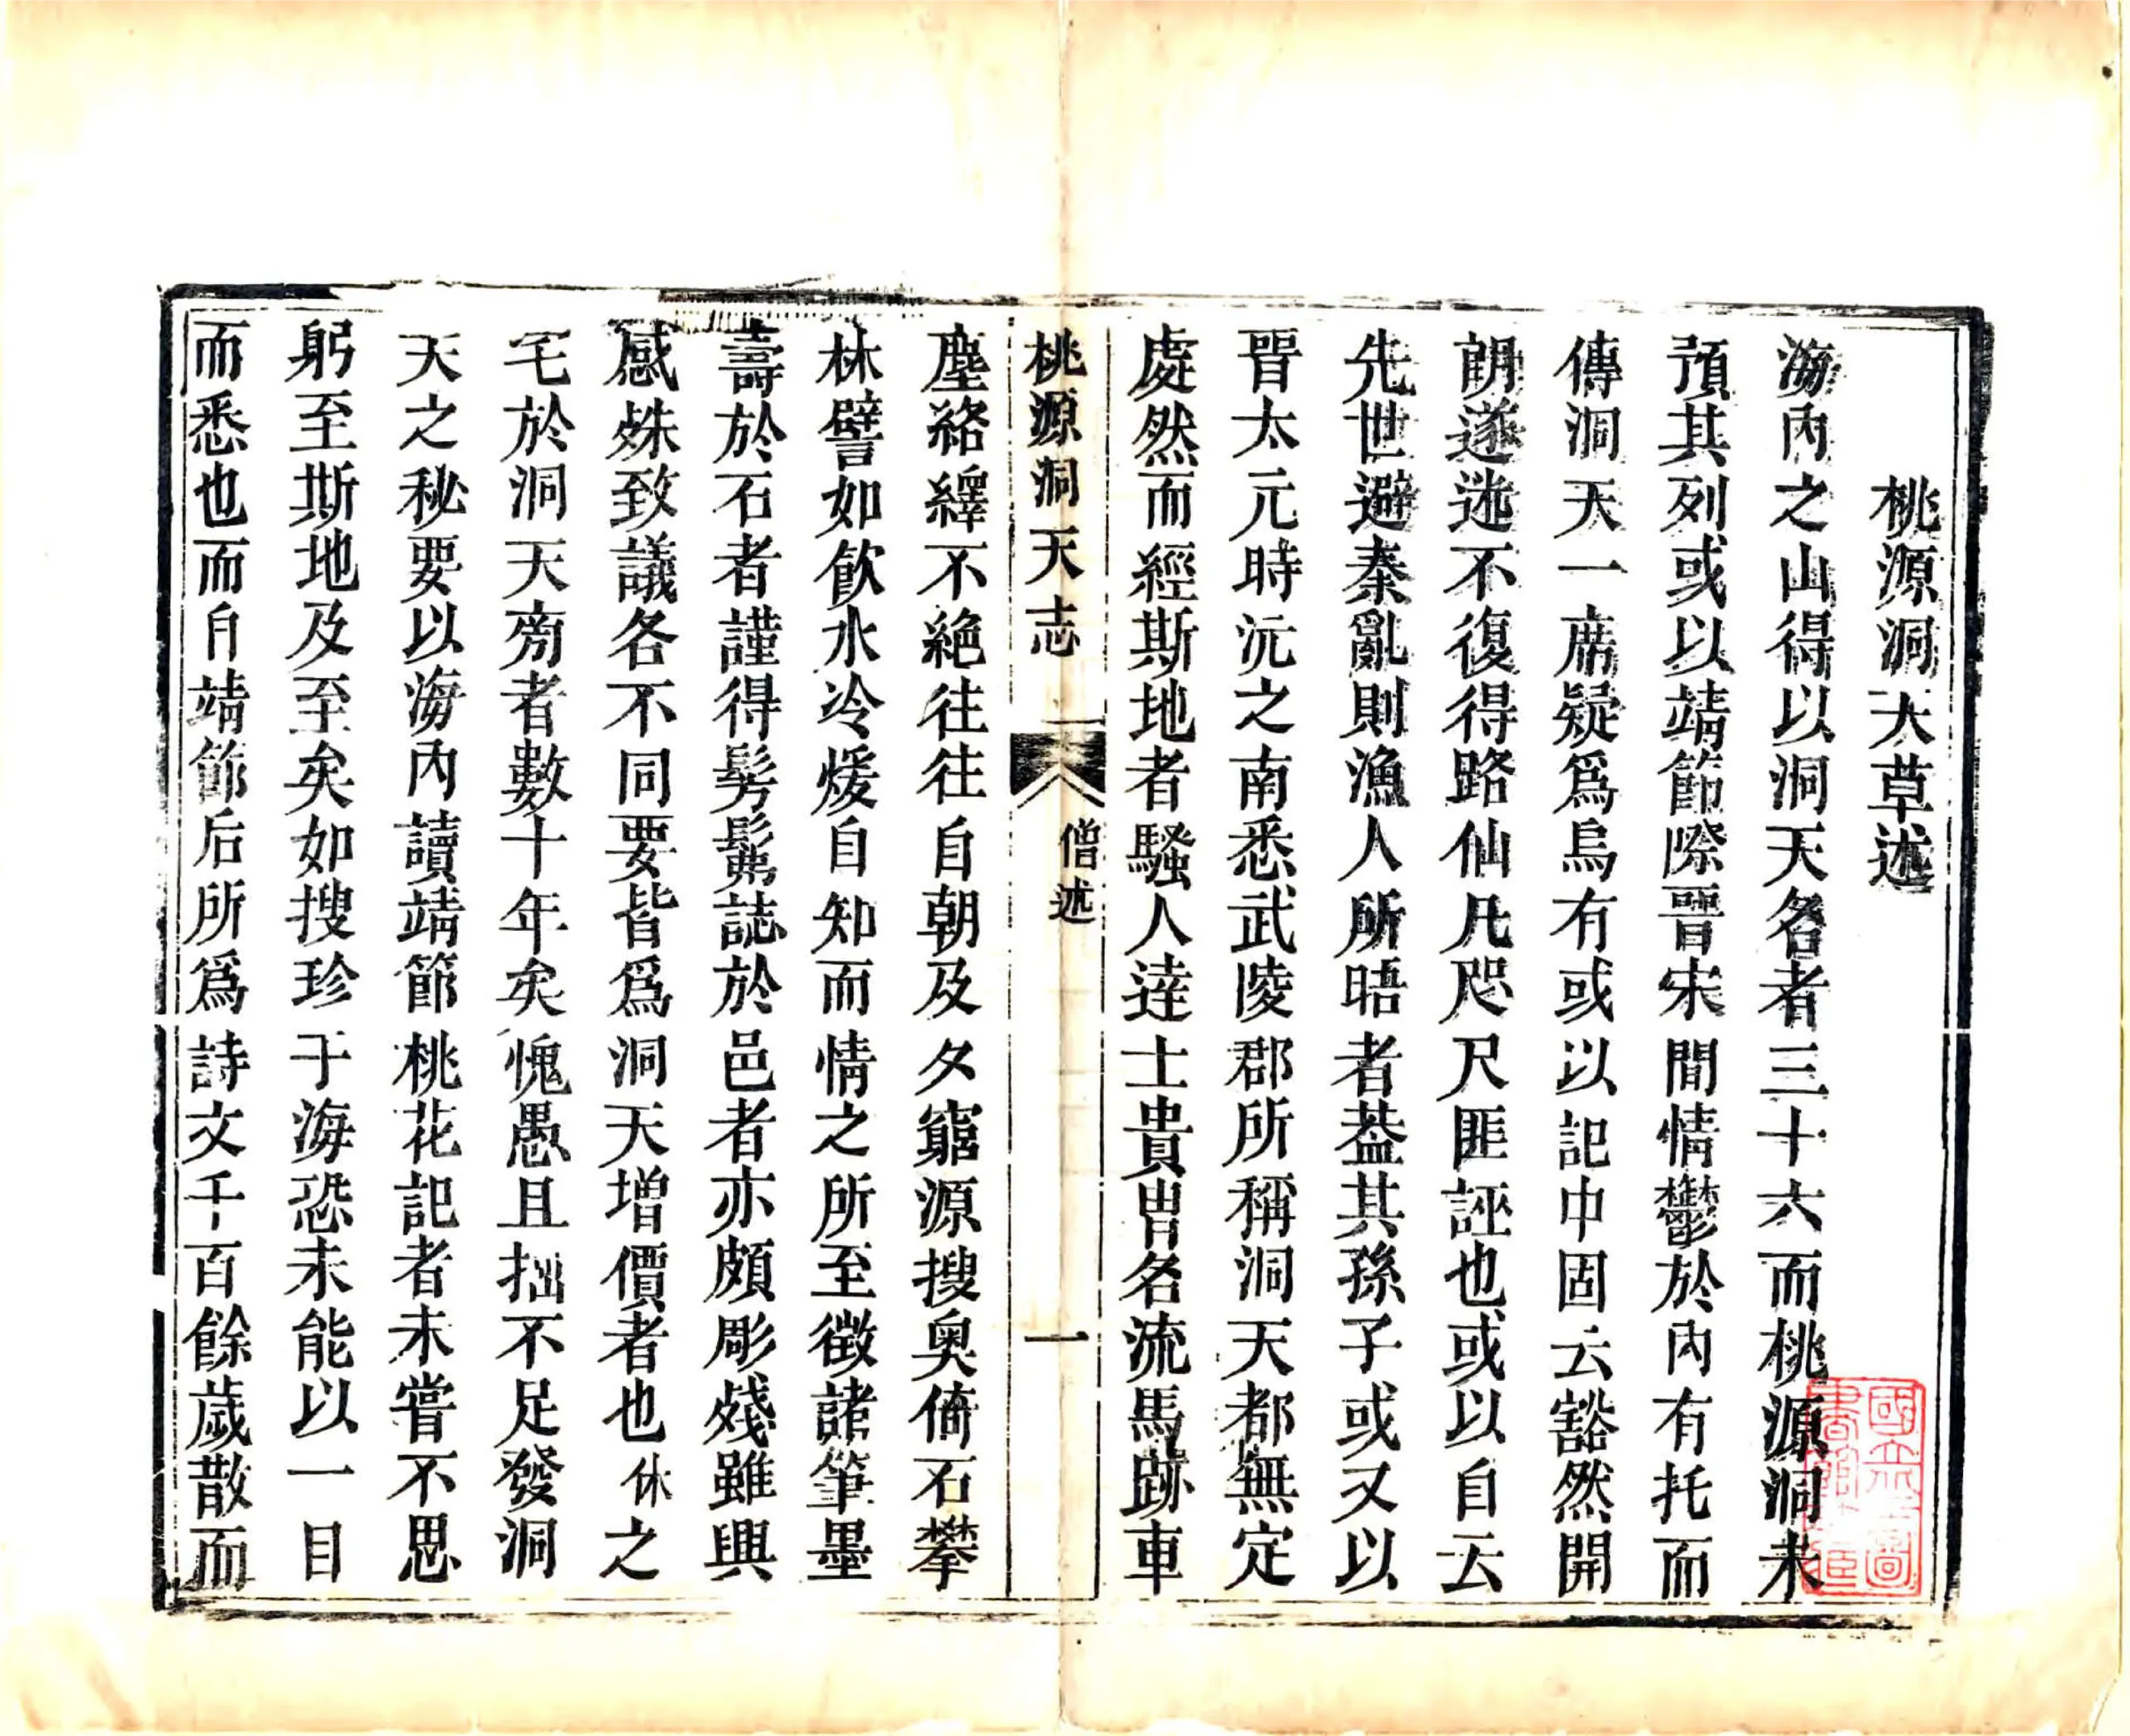 桃源洞天草述
海內之山得以洞天名者三十六而桃源洞未
預其列或以靖節際晉宋間情鬱於內有托而
傳洞天一席疑爲烏有或以記中固云豁然開
朗遂迷不復得路仙凡咫尺匪誣也或以自云
先世避秦亂則漁人所晤者葢其孫子或又以
晉太元時沅之南悉武陵郡所稱洞天都無定
處然而經斯地者騷人達士貴冑名流馬跡車
桃源洞天志 僧述 一
塵絡繹不絶往往自朝及夕窮源搜奥倚石攀
林譬如飲水冷煖自知而情之所至徵諸筆墨
壽於石者謹得髣髴誌於邑者亦頗彫殘雖興
感殊致議各不同要皆爲洞天增價者也休之
宅於洞天旁者數十年矣愧愚且拙不足發洞
天之秘要以海內讀靖節桃花記者未嘗不思
躬至斯地及至矣如搜珍于海恐未能以一目
而悉也而自靖節后所爲詩文千百餘歲散而
國立 圖書館